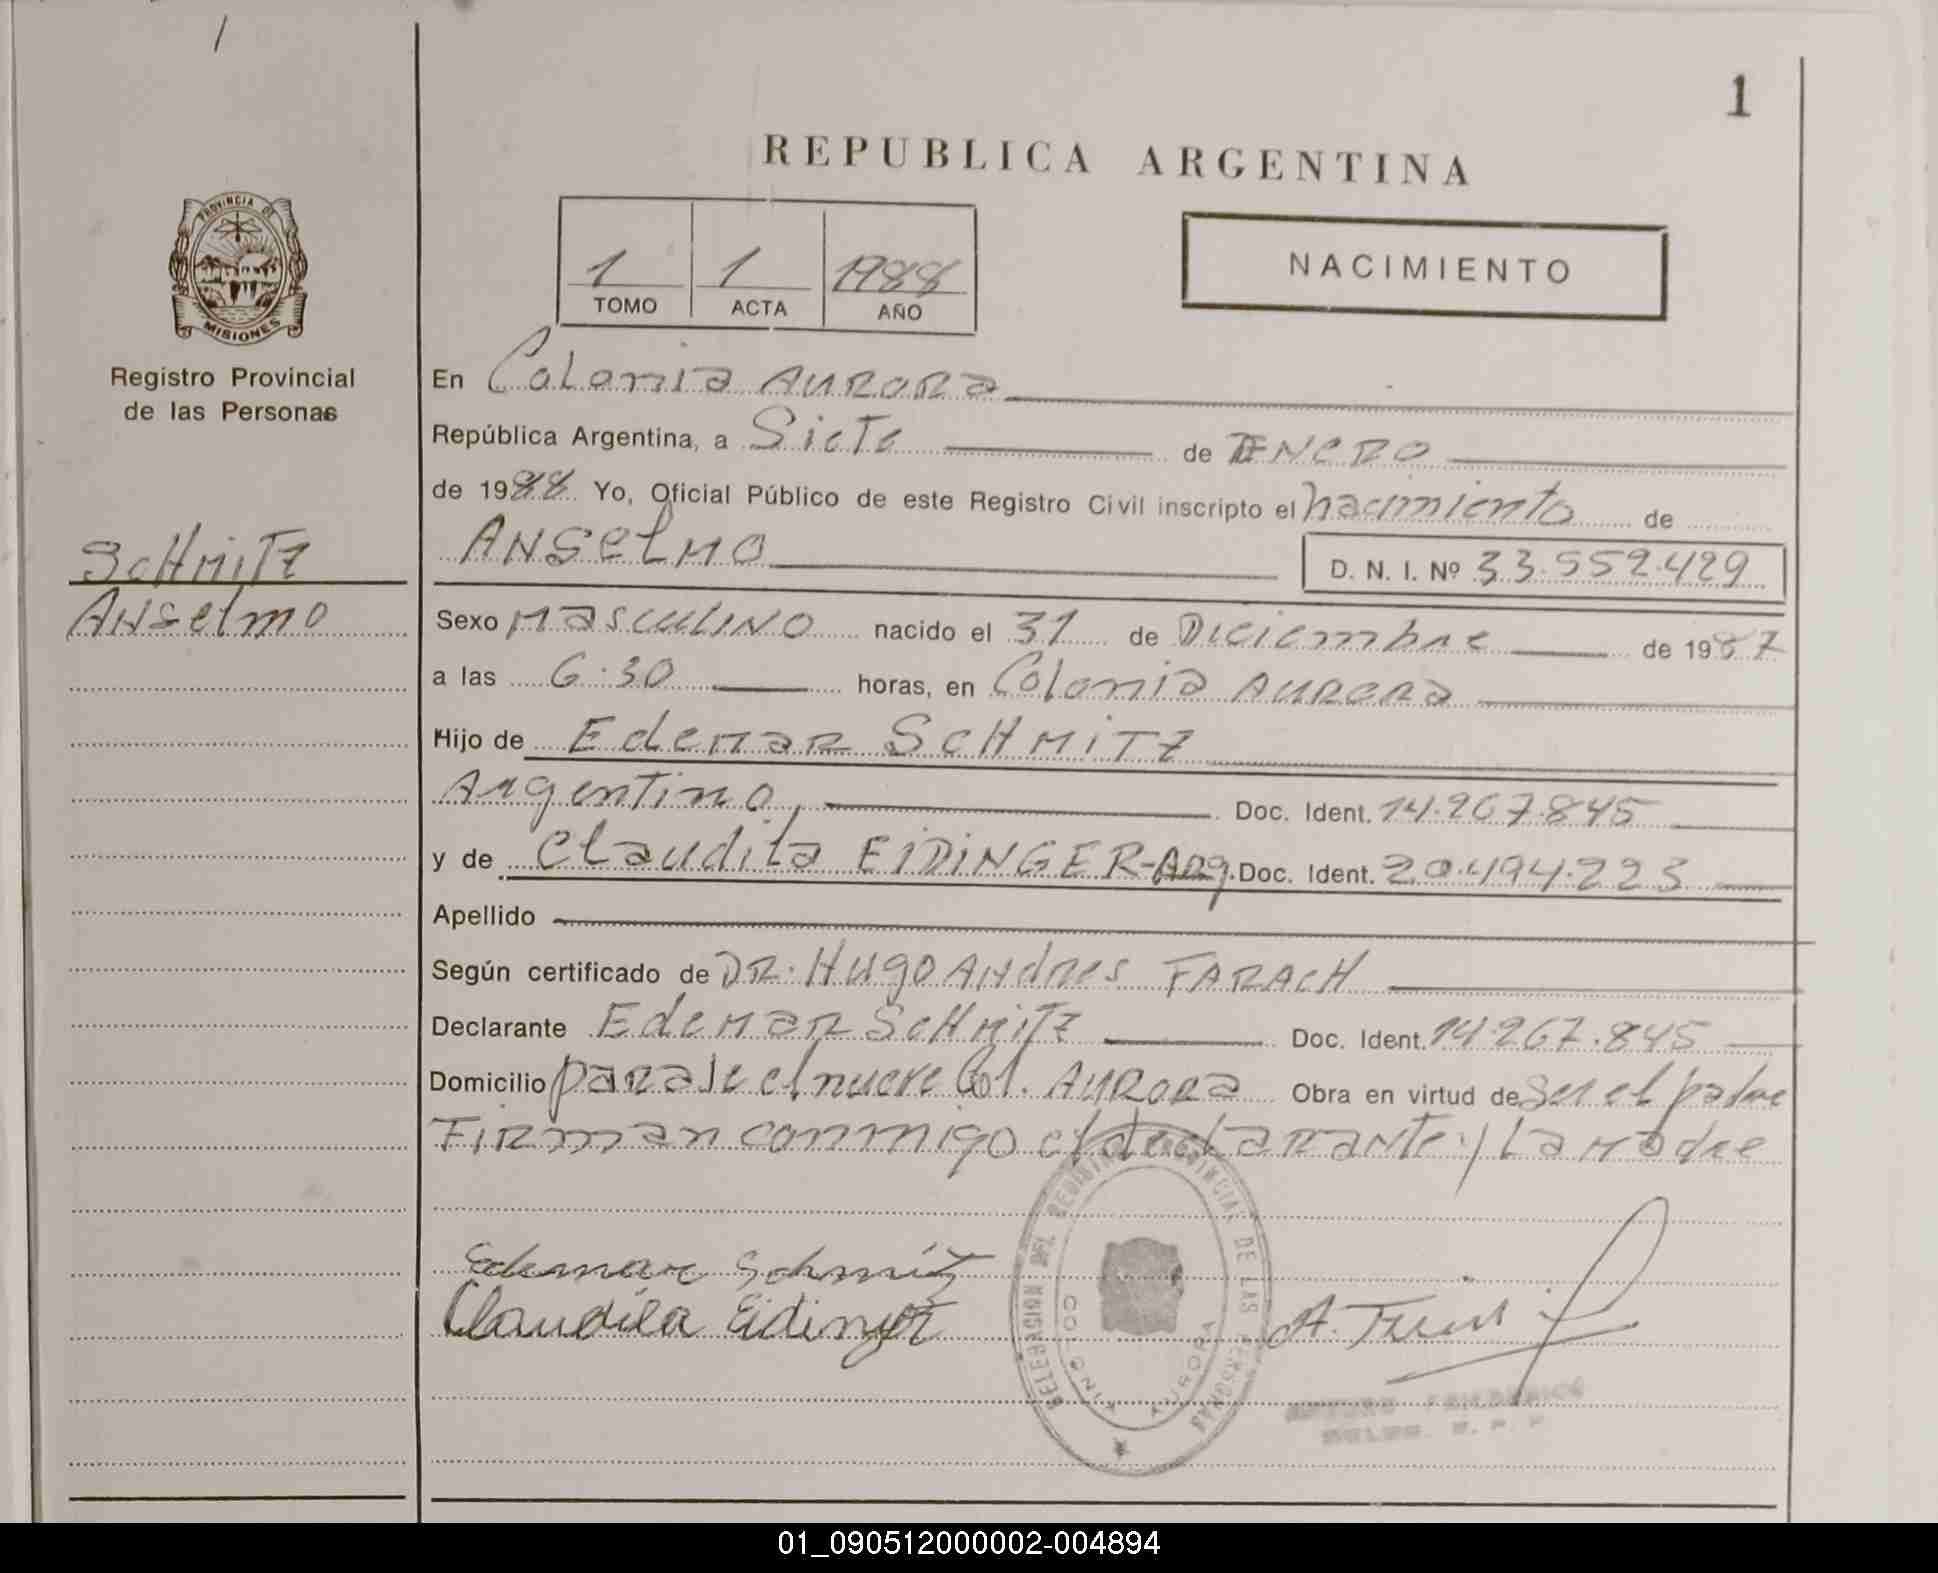 1
1
REPUBLICA ARGENTINA
PROVINCIA DE
MISIONES
1 1 1988
TOMO ACTA AÑO
NACIMIENTO
Registro Provincial
de las Personas
SCHMITZ
Anselmo
En Colonia AURORA
República Argentina, a Siete de ENERO
de 1988 Yo, Oficial Público de este Registro Civil inscripto el nacimiento de
ANSELMO D. N. I. Nº 33.552.429
Sexo MASCULINO nacido el 31 de Diciembre de 1987
a las 6:30 horas, en Colonia AURORA
Hijo de Edemar SCHMITZ
Argentino, Doc. Ident. 14.267.845
y de Claudila EIDINGER-Arg. Doc. Ident. 20.494.223
Apellido
Según certificado de DR. Hugo Andres FARACH
Declarante Edemar SCHMITZ Doc. Ident. 14.267.845
Domicilio paraje el nueve Col. AURORA Obra en virtud de Ser el padre
Firman conmigo el declarante y la madre
DELEGACION DEL REGISTRO PROVINCIAL DE LAS PERSONAS
COLONIA AURORA
Edemar Schmitz
Claudila Eidinger
01_090512000002-004894